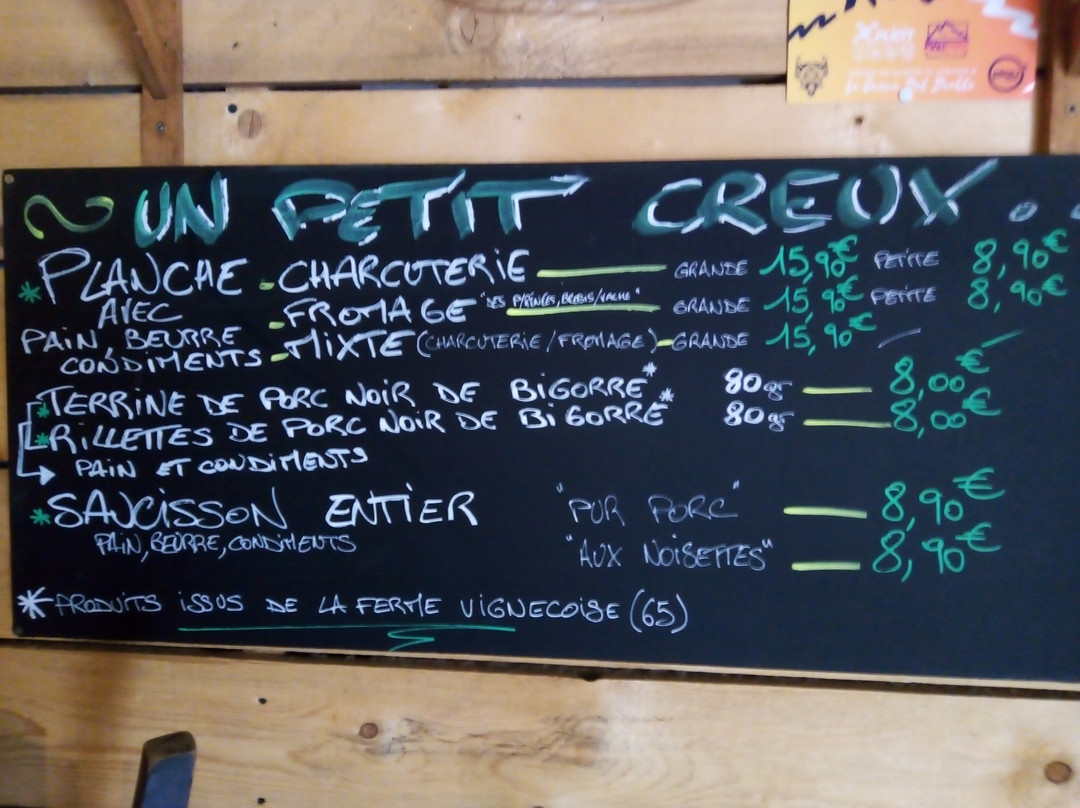 ~ UN PETIT CREUX . .
* PLANCHE - CHARCUTERIE GRANDE 15,90€ PETITE 8,90€
AVEC - FROMAGE "DES PYRÉNÉES, BREBIS/VACHE" GRANDE 15,90€ PETITE 8,90€
PAIN, BEURRE
CONDIMENTS - MIXTE (CHARCUTERIE/FROMAGE) - GRANDE 15,90€
* TERRINE DE PORC NOIR DE BIGORRE* 80gr 8,00€
* RILLETTES DE PORC NOIR DE BIGORRE* 80gr 8,00€
→ PAIN ET CONDIMENTS
* SAUCISSON ENTIER "PUR PORC" 8,90€
PAIN, BEURRE, CONDIMENTS "AUX NOISETTES" 8,90€
* PRODUITS ISSUS DE LA FERME VIGNECOISE (65)